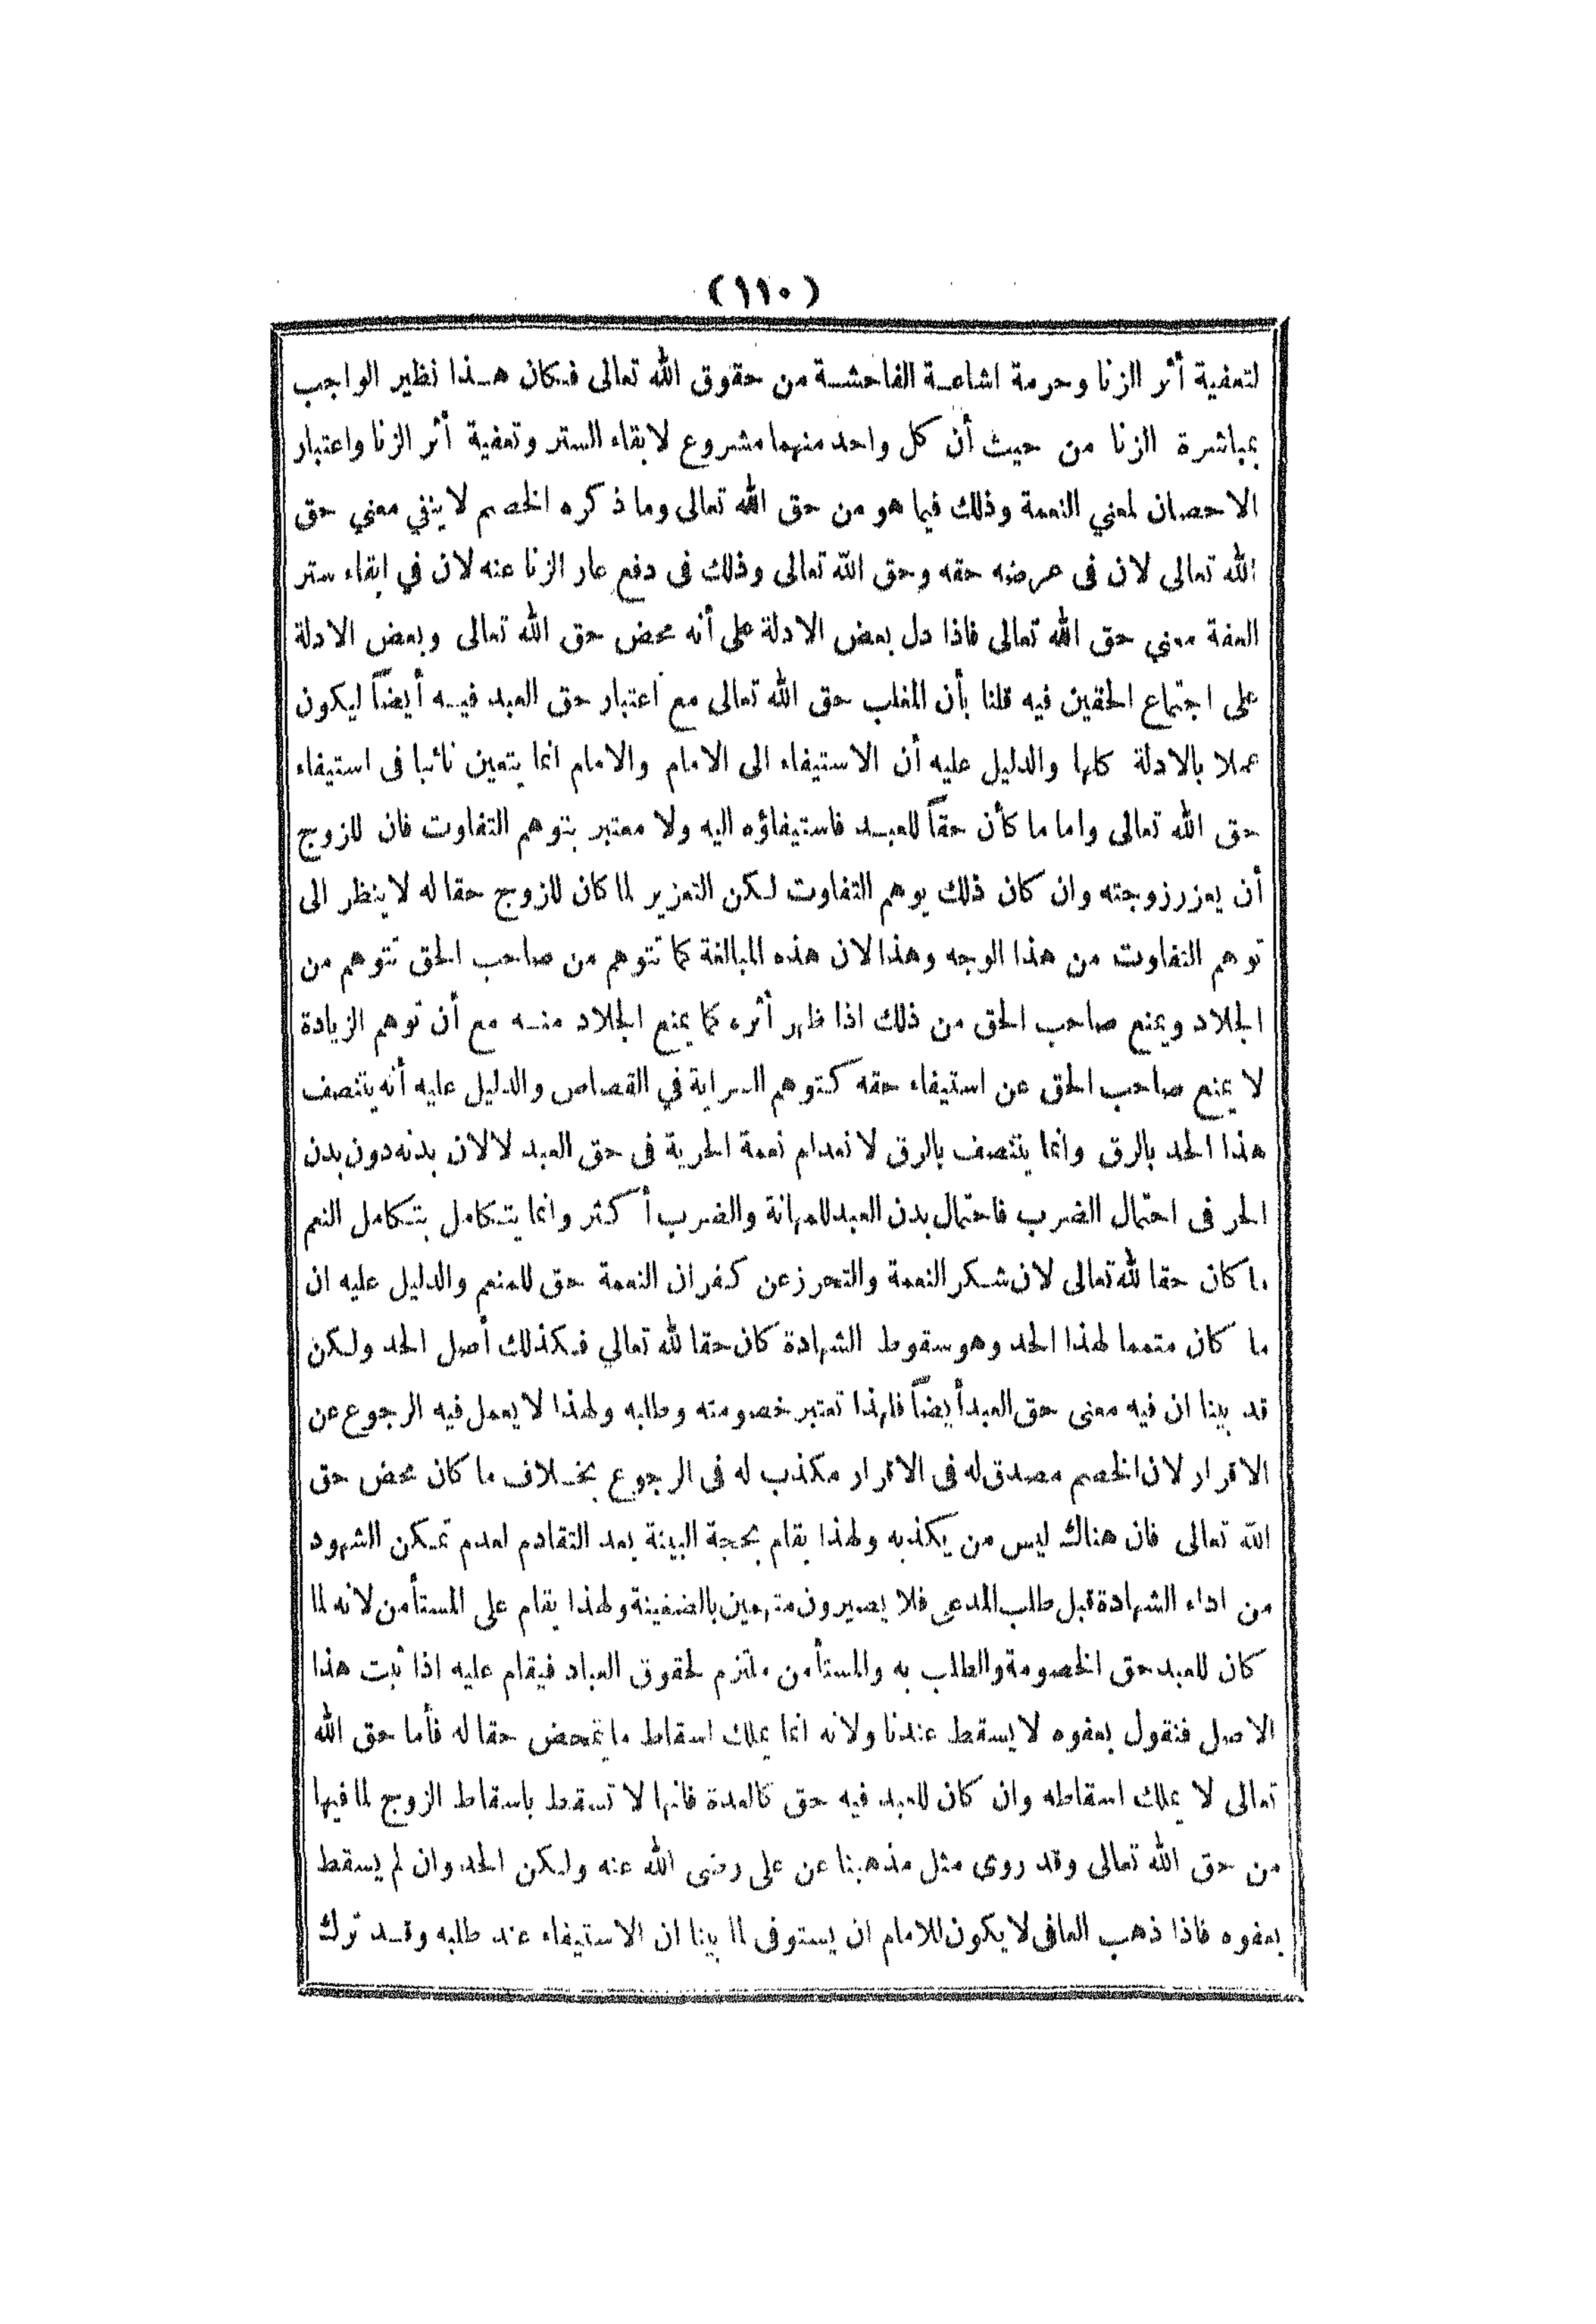 (١١٠)
لتعفية أثر الزنا وحرمة اشاعة الفاحشة من حقوق الله تعالى فكان هذا نظير الواجب
بمباشرة الزنا من حيث أن كل واحد منهما مشروع لابقاء الستر وتعفية أثر الزنا واعتبار
الاحصان لمعني النعمة وذلك فيما هو من حق الله تعالى وما ذكره الخصم لا ينفي معني حق
الله تعالى لان فى عرضه حقه وحق الله تعالى وذلك فى دفع عار الزنا عنه لان في ابقاء ستر
العفة معني حق الله تعالى فاذا دل بعض الادلة على أنه محض حق الله تعالى وبعض الادلة
على اجتماع الحقين فيه قلنا بأن المغلب حق الله تعالى مع اعتبار حق العبد فيه أيضاً ليكون
عملا بالادلة كلها والدليل عليه أن الاستيفاء الى الامام والامام انما يتعين نائبا فى استيفاء
حق الله تعالى واما ما كأن حقاً للعبد فاستيفاؤه اليه ولا معتبر بتوهم التفاوت فان للزوج
أن يعزر زوجته وان كان ذلك يوهم التفاوت لكن التعزير لما كان للزوج حقا له لا ينظر الى
توهم التفاوت من هذا الوجه وهذا لان هذه المبالغة كما تتوهم من صاحب الحق تتوهم من
الجلاد ويمنع صاحب الحق من ذلك اذا ظهر أثره كما يمنع الجلاد منه مع أن توهم الزيادة
لا يمنع صاحب الحق عن استيفاء حقه كتوهم السراية في القصاص والدليل عليه أنه يتنصف
هذا الحد بالرق وانما يتنصف بالرق لانعدام نعمة الحرية فى حق العبد لا لان بدنه دون بدن
الحر فى احتمال الضرب فاحتمال بدن العبد للمهانة والضرب أكثر وانما يتكامل بتكامل النعم
ما كان حقا لله تعالى لان شكر النعمة والتحرز عن كفران النعمة حق للمنعم والدليل عليه ان
ما كان متمما لهذا الحد وهو سقوط الشهادة كان حقا لله تعالي فكذلك أصل الحد ولكن
قد بينا ان فيه معنى حق العبد أيضاً فلهذا تعتبر خصومته وطلبه ولهذا لا يعمل فيه الرجوع عن
الاقرار لان الخصم مصدق له فى الاقرار مكذب له فى الرجوع بخلاف ما كان محض حق
الله تعالى فان هناك ليس من يكذبه ولهذا يقام بحجة البينة بعد التقادم لعدم تمكن الشهود
من اداء الشهادة قبل طلب المدعى فلا يصيرون متهمين بالضغينة ولهذا يقام على المستأمن لانه لما
كان للعبد حق الخصومة والطلب به والمستأمن ملتزم لحقوق العباد فيقام عليه اذا ثبت هذا
الاصل فنقول بعفوه لا يسقط عندنا ولانه انما يملك اسقاط ما يتمحض حقا له فأما حق الله
تعالى لا يملك اسقاطه وان كان للعبد فيه حق كالعدة فانها لا تسقط باسقاط الزوج لما فيها
من حق الله تعالى وقد روى مثل مذهبنا عن على رضى الله عنه ولكن الحد وان لم يسقط
بعفوه فاذا ذهب العافى لا يكون للامام ان يستوفى لما بينا ان الاستيفاء عند طلبه وقد ترك